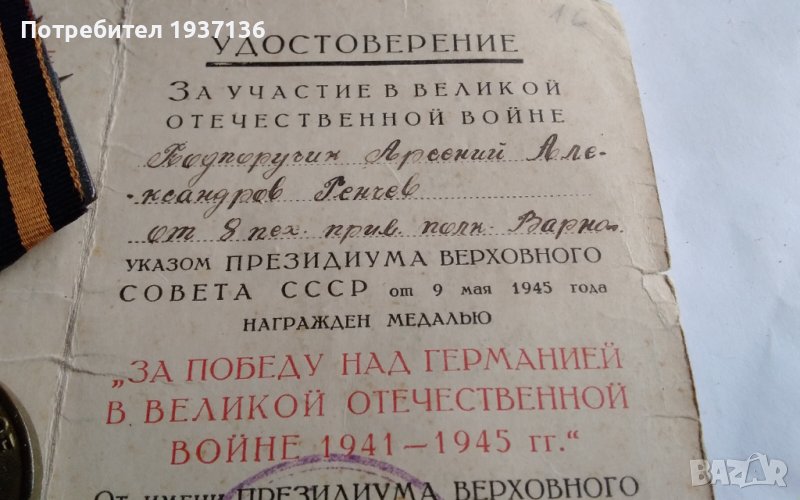 Потребител 1937136
16
УДОСТОВЕРЕНИЕ
ЗА УЧАСТИЕ В ВЕЛИКОЙ
ОТЕЧЕСТВЕННОЙ ВОЙНЕ
Подпоручик Арсений Але-
ксандров Генчев
от 8 пех. прим. полк. Варна
УКАЗОМ ПРЕЗИДИУМА ВЕРХОВНОГО
СОВЕТА СССР от 9 мая 1945 года
НАГРАЖДЕН МЕДАЛЬЮ
„ЗА ПОБЕДУ НАД ГЕРМАНИЕЙ
В ВЕЛИКОЙ ОТЕЧЕСТВЕННОЙ
ВОЙНЕ 1941—1945 гг.“
ОТ ИМЕНИ ПРЕЗИДИУМА ВЕРХОВНОГО
BAZAR